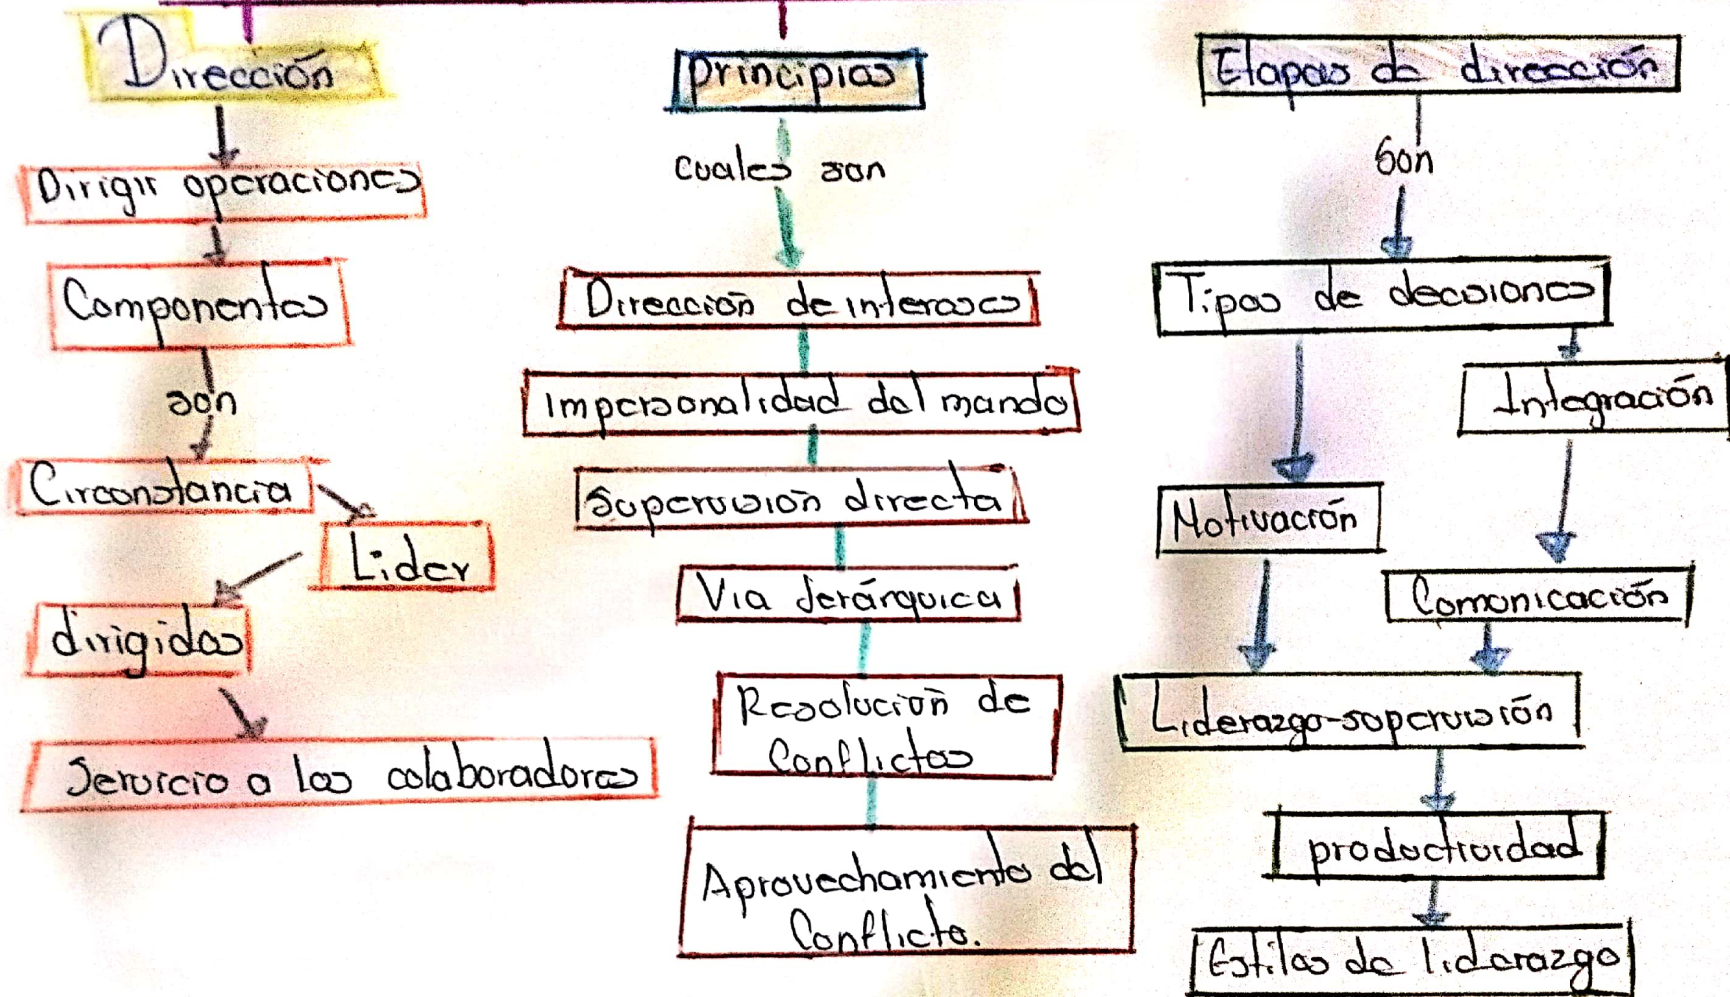 Dirección
Dirigir operaciones
Componentes
son
Circunstancia
Lider
dirigidos
Servicio a los colaboradores
principios
cuales son
Dirección de intereses
Impersonalidad del mando
Supervision directa
Via Jerárquica
Resolución de
Conflictos
Aprovechamiento del
Conflicto.
Etapas de dirección
Son
Tipos de decisiones
Integración
Motivación
Comunicación
Liderazgo-supervisión
productividad
Estilos de liderazgo